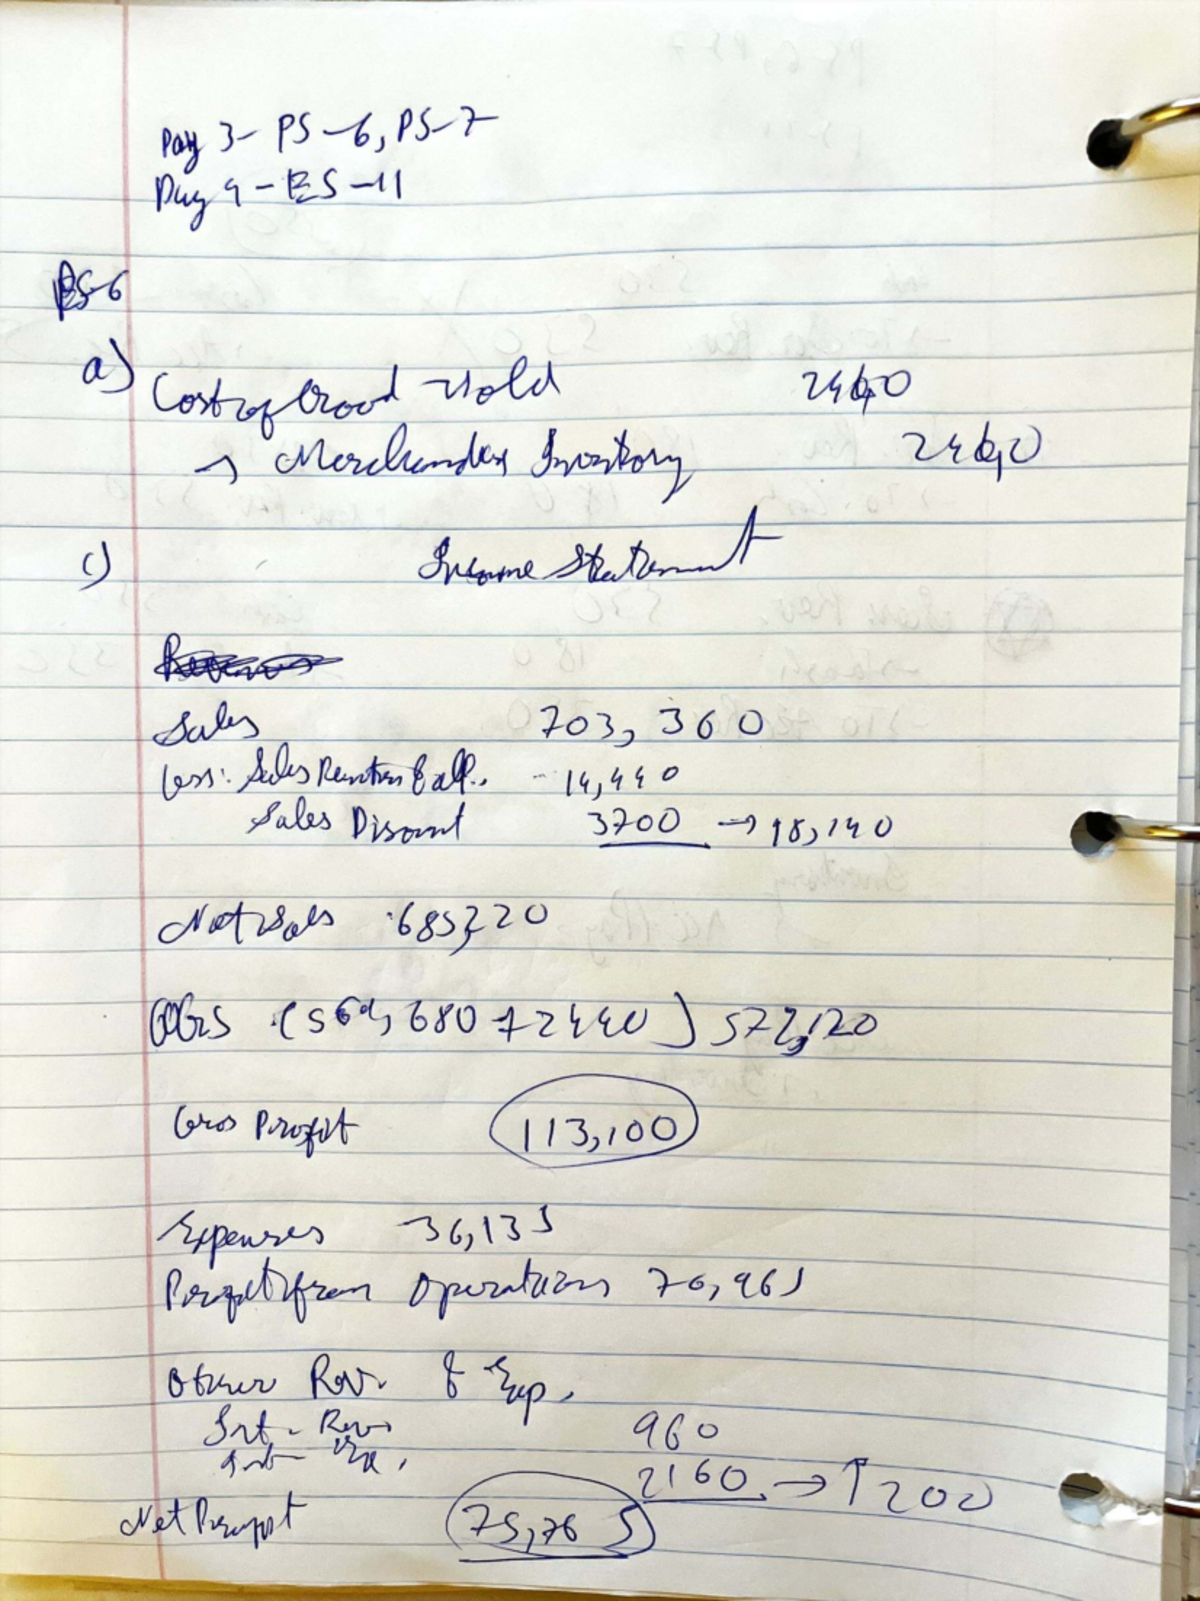 Day 3- PS-6, PS-7
Day 4-ES-11
PS-6
a) Cost of Good Sold 2440
→ Merchandise Inventory 2440
c) Income Statement
Sales 703,360
Less: Sales Return & all. 14,440
Sales Discount 3700 → 18,140
Net Sales 685,220
COGS (569,680 + 2440) 572,120
Gros Profit 113,100
Expenses 36,135
Profit from Operations 76,965
Other Rev. & Exp.
Int. Rev 960
Int. Ex. 2160 → 1200
Net Profit 75,765